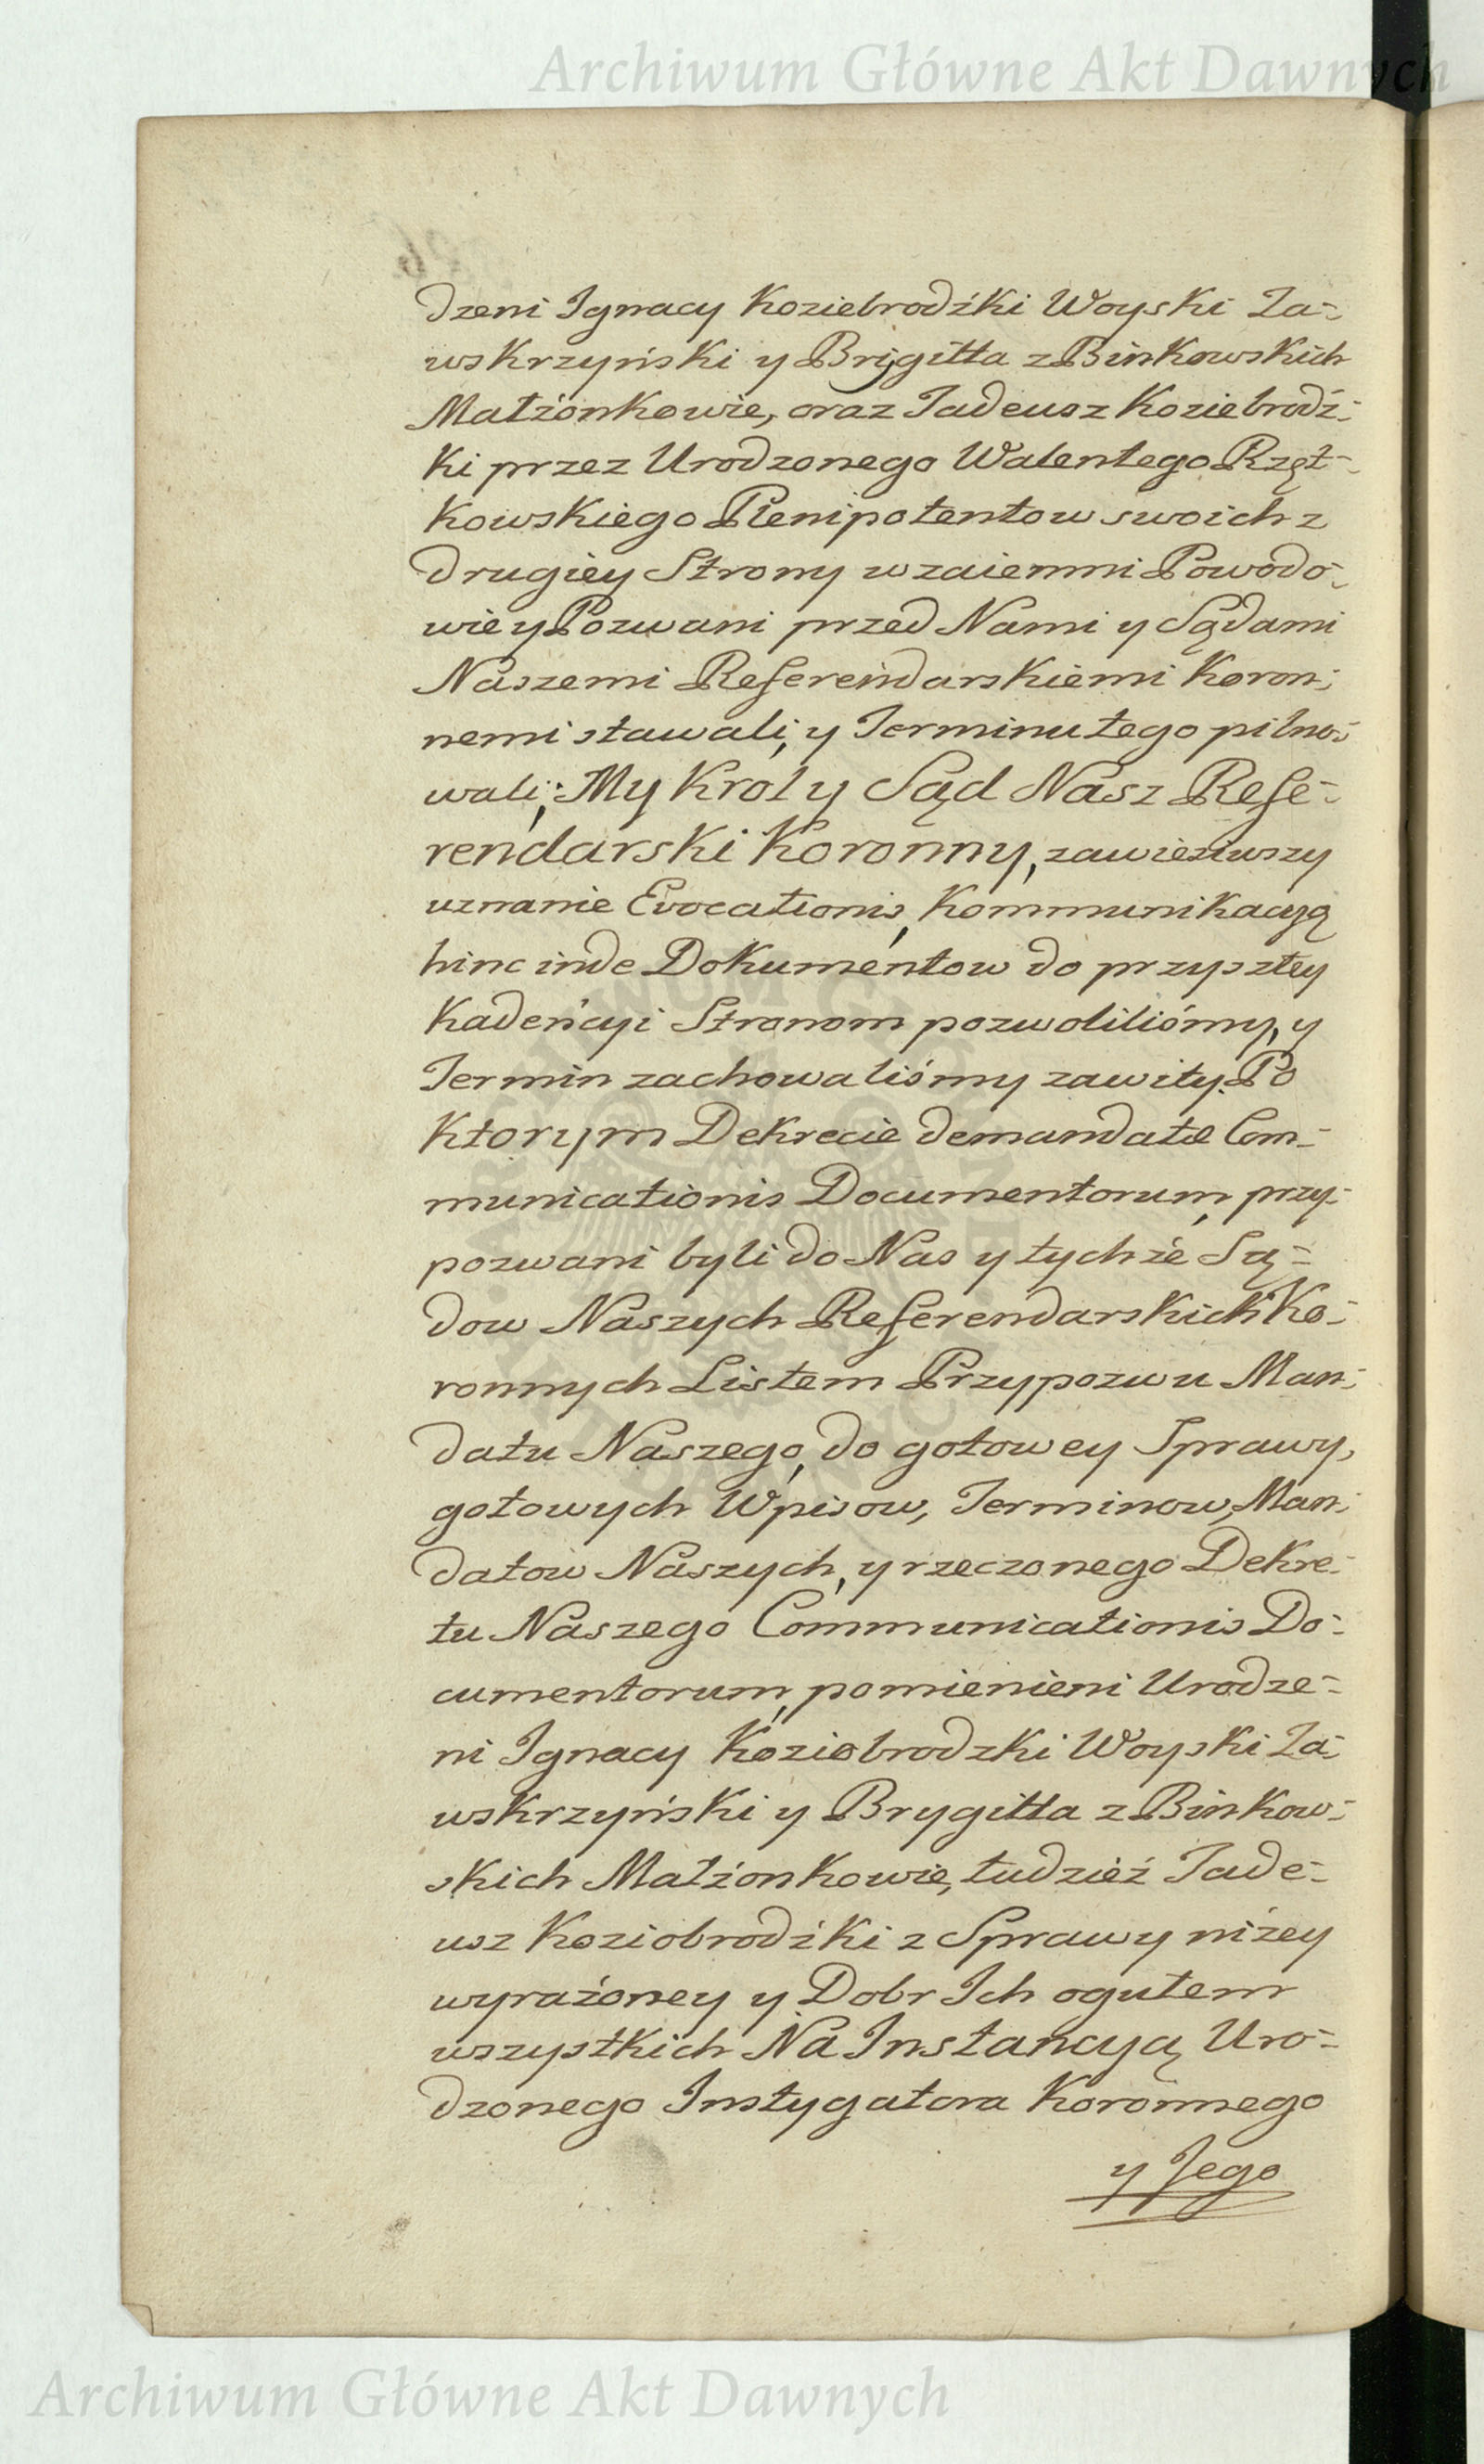 Archiwum Główne Akt Dawnych
dzeni Ignacy Koziebrodźki Woyski Za-
wskrzyński y Brigitta z Binkowskich
Małżonkowie, oraz Tadeusz Koziebrodź-
ki przez Urodzonego Walentego Rzęt-
kowskiego Plenipotentow swoich z
drugiey Strony wzaiemni Powodo-
wie y Pozwani przed Nami y Sądami
Naszemi Referendarskiemi Koron-
nemi stawali, y Terminu tego pilno-
wali; My Krol y Sąd Nasz Refe-
rendarski Koronny, zawiesiwszy
uznanie Evocationis, Kommunikacyą
hinc inde Dokumentow do przyszłey
Kadencyi Stronom pozwoliliśmy, y
Termin zachowaliśmy zawity. Po
ktorym Dekrecie demandatæ Com-
municationis Documentorum, przy-
pozwani byli do Nas y tychże Są-
dow Naszych Referendarskich Ko-
ronnych Listem Przypozwu Man-
datu Naszego, do gotowey Sprawy,
gotowych Wpisow, Terminow, Man-
datow Naszych, y rzeczonego Dekre-
tu Naszego Communicationis Do-
cumentorum, pomienieni Urodze-
ni Ignacy Koziobrodzki Woyski Za-
wskrzyński y Brygitta z Binkow-
skich Małżonkowie, tudzież Tade-
usz Koziobrodźki z Sprawy niżey
wyrażoney y Dobr Ich ogułem
wszystkich Na Instancyą Uro-
dzonego Instygatora Koronnego
y Jego
Archiwum Główne Akt Dawnych